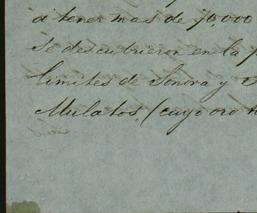 á tener mas de 70,000
se descubrieron en la
limites de Sonora y
Mulatos, (cuyo oro